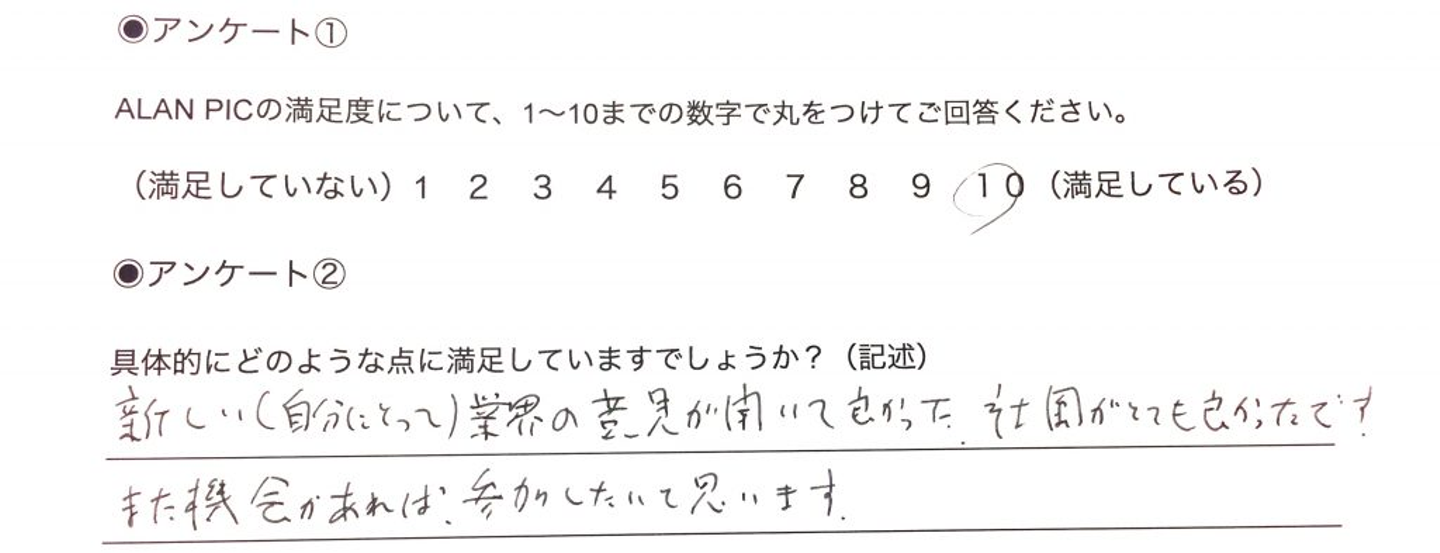 ◉アンケート①
ALAN PICの満足度について、1〜10までの数字で丸をつけてご回答ください。
（満足していない）1 2 3 4 5 6 7 8 9 10（満足している）
◉アンケート②
具体的にどのような点に満足していますでしょうか？（記述）
新しい（自分にとって）業界の意見が聞いて良かった. 雰囲気がとても良かったです
また機会があれば、参加したいと思います.